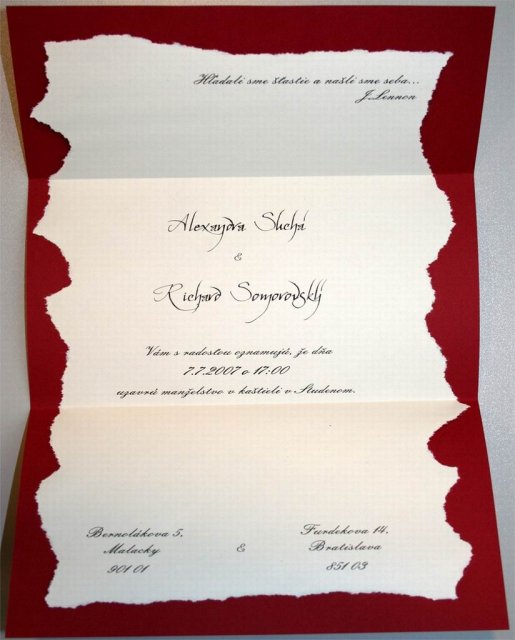 Hľadali sme šťastie a našli sme seba...
J.Lennon
Alexandra Suchá
&
Richard Somorovský
Vám s radosťou oznamujú, že dňa
7.7.2007 o 17:00
uzavrú manželstvo v kaštieli v Studenom.
Bernolákova 5,
Malacky
901 01
&
Furdekova 14,
Bratislava
851 03